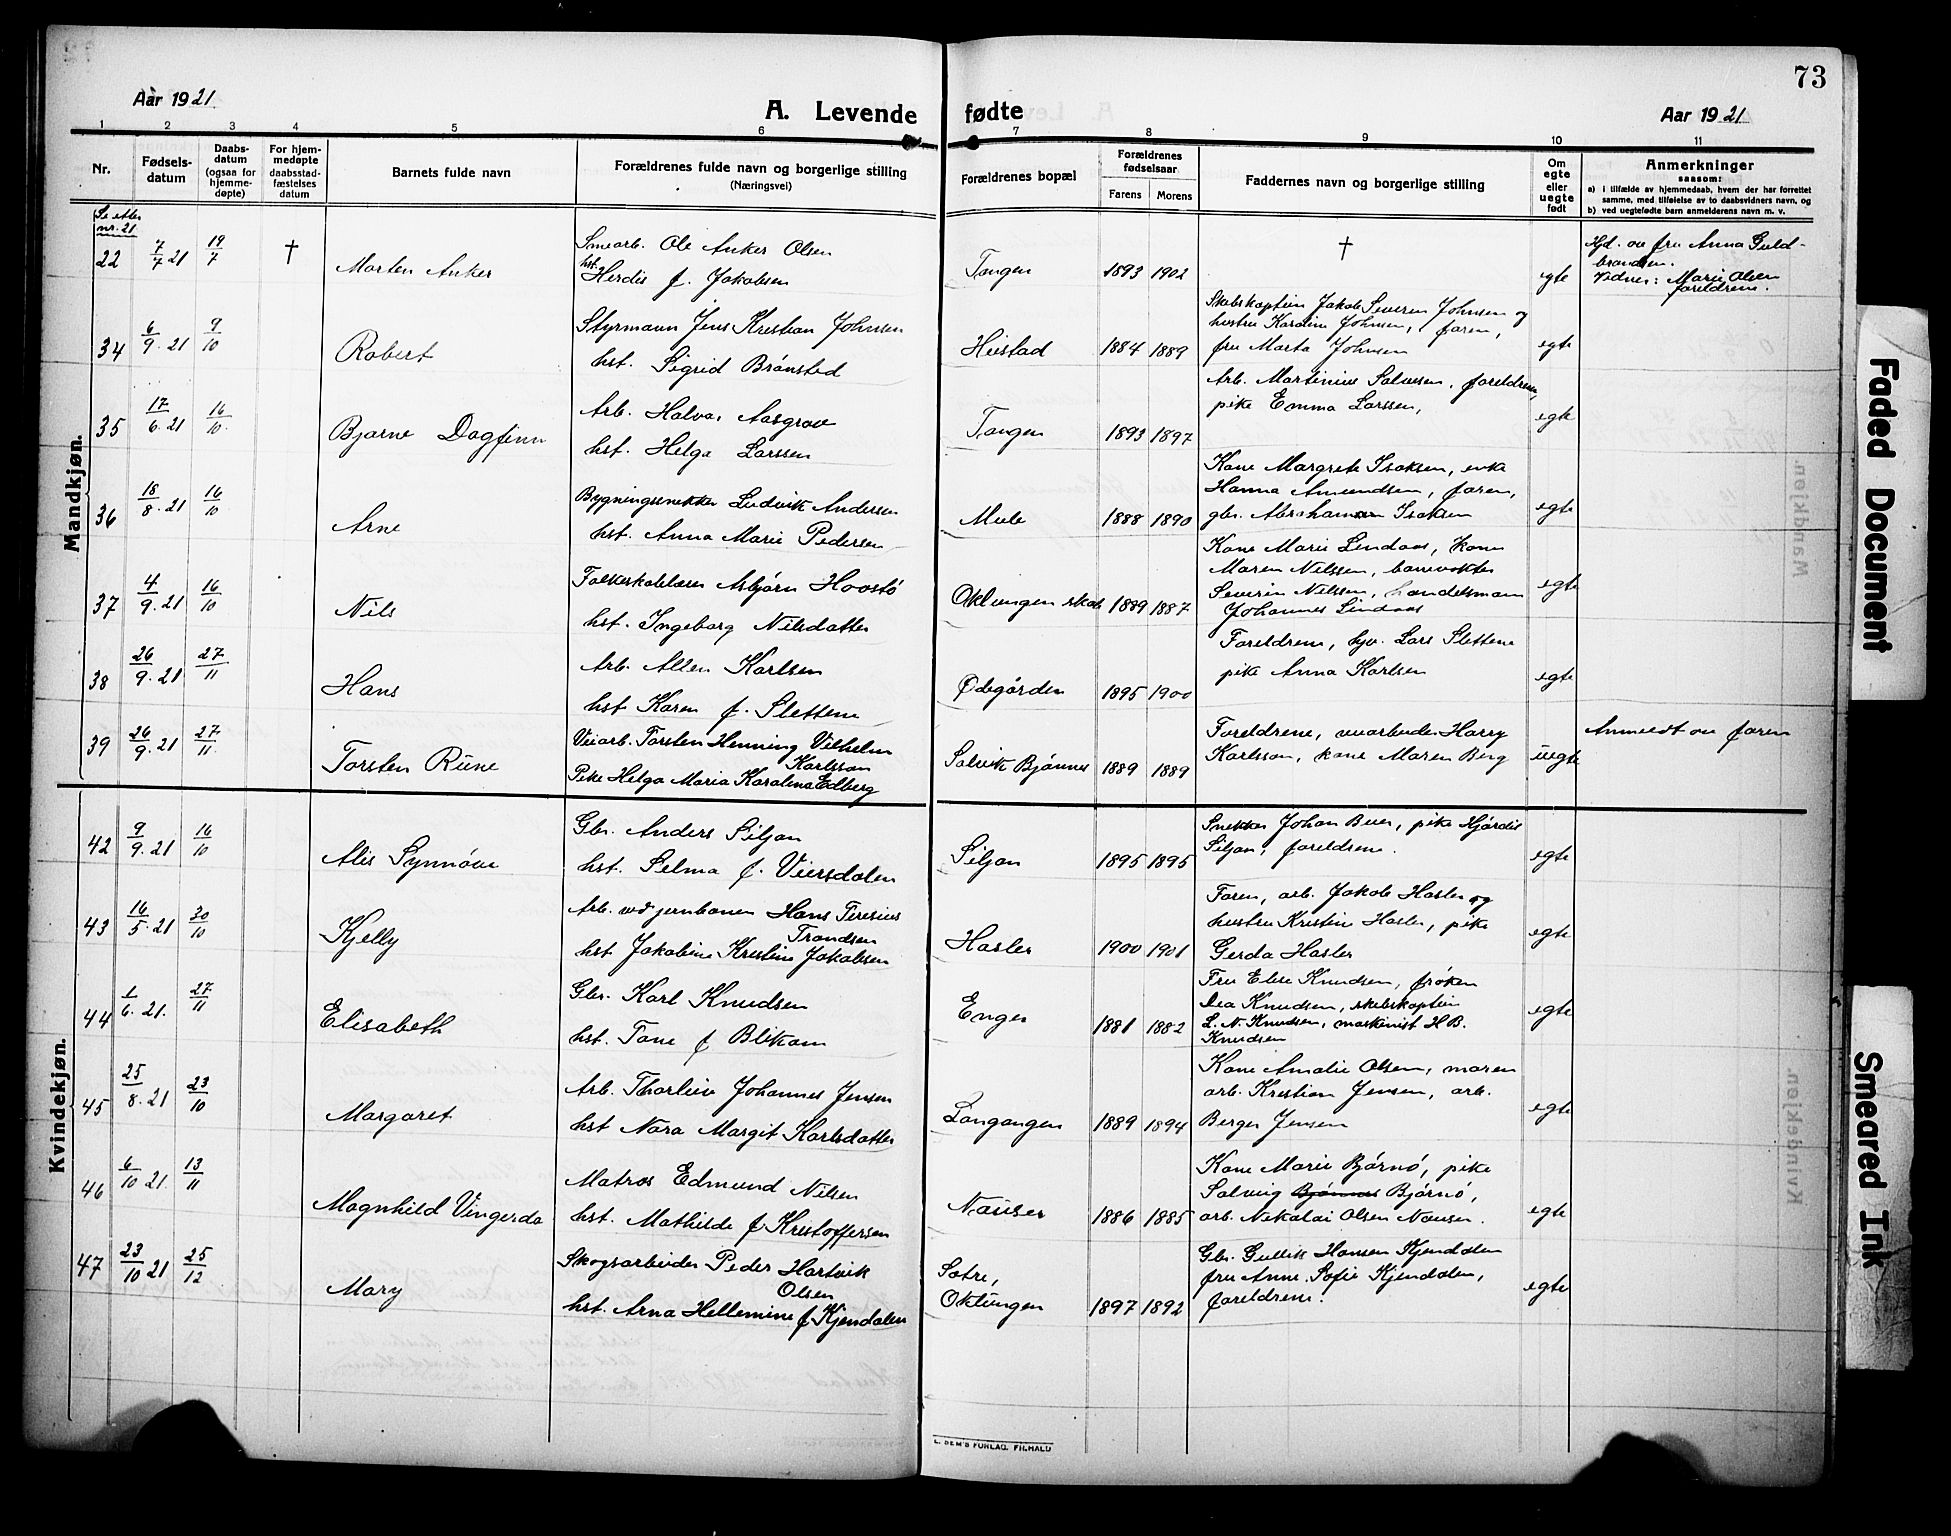 73
Aar 1921.
A. Levende fødte
Aar 1921
1 2 3 4 5 6 7 8 9 10 11
Nr.
Fødsels-
datum
Daabs-
datum
(ogsaa for
hjemme-
døpte)
For hjem-
medøpte
daabsstad-
fæstelses
datum
Barnets fulde navn
Forældrenes fulde navn og borgerlige stilling
(Næringsvei)
Forældrenes bopæl
Forældrenes
fødselsaar
Farens Morens
Faddernes navn og borgerlige stilling
Om
egte
eller
uegte
født
Anmerkninger
saasom:
a) i tilfælde av hjemmedaab, hvem der har forrettet
samme, med tilføielse av to daabsvidners navn, og
b) ved uegtefødte barn anmelderens navn m. v.
Mandkjøn.
Se efter
nr. 21
22 7/7 21 19/7 † Morten Anker
Smearb. Ole Anker Olsen
hst. Herdis f. Jakobsen
Tangen 1893 1902 † egte
Hjd. av fru Anna Guld-
brandsen.
Vidner: Marie Olsen
foreldrene.
34 6/9 21 9/10 Robert
Styrmann Jens Kristian Johnsen
hst. Sigrid Brønsted
Heistad 1884 1889
Skibskaptein Jakob Severin Johnsen og
hustru Karoline Johnsen, faren,
fru Marta Johnsen
egte
35 17/6.21 16/10. Bjarne Dagfinn
Arb. Halvar Aasgrav
hst. Helga Larssen
Tangen 1893 1897
Arb. Martinius Salvesen, foreldrene,
pike Emma Larssen,
egte
36 18/8.21 16/10 Arne
Bygningssnekker Ludvik Andersen
hst. Anna Marie Pedersen
Mule 1888 1890
Kone Margrete Isaksen, enke
Hanna Amundsen, faren,
gbr. Abraham Isaksen
egte
37 4/9.21 16/10 Nils
Folkeskolelærer Asbjørn Hovstø
hst. Ingeborg Nilsdatter
Oklungen skole 1889 1887
Kone Marie Lindaas, kone
Maren Nilssen, banevokter
Severin Nilssen, handelsmann
Johannes Lindaas
egte
38 26/9.21 27/11 Hans
Arb. Alten Karlsen
hst Karen f. Slettene
Ødegården 1895 1900
Foreldrene, Lars Slettene
pike Anna Karlsen
egte
39 26/9.21 27/11. Torsten Rune
Veiarb. Torsten Henning Vilhelm
Karlsson
Pike Helga Maria Karolina Edberg
Salvik Bjønnes 1889 1889
Foreldrene, veiarbeider Harry
Karlsson, kone Maren Berg
uegte
Anmeldt av faren
Kvindekjøn.
42 9/9.21 16/10 Alis Synnøve
Gbr. Anders Siljan
hst. Selma f. Viersdalen
Siljan 1895 1895
Snekker Johan Buer, pike Hjørdis
Siljan, foreldrene.
egte
43 16/5.21 30/10 Kjelly
Arb. ved jernbanen Hans Teresius
Trondsen
hst Jakobine Kristine Jakobsen
Hasler 1900 1901
Faren, arb. Jakob Hasler og
hustru Kristine Hasler, pike
Gerda Hasler
egte
44 1/6.21. 27/11 Elisabeth
Gbr. Karl Knudsen
hst. Tone f Blekom
Enger 1881 1882
Fru Elise Knudsen, frøken
Dea Knudsen, skibskaptein
L. N. Knudsen, maskinist H B.
Knudsen
egte
45 25/8.21 23/10 Margaret
Arb. Thorleiv Johannes Jensen
hst Nora Margit Karlsdatter
Langangen 1889 1894
Kone Amalie Olsen, moren
arb. Kristian Jensen, arb.
Berger Jensen
egte
46 6/10 21. 13/11 Magnhild Vingerda
Matros Edmund Nilsen
hst. Mathilde f Kristoffersen
Nauser 1886 1885
Kone Marie Bjørnø, pike
Solveig Bjønnes Bjørnø,
arb. Nikolai Olsen Nausen.
egte
47 23/10 21 25/12 Mary
Skogsarbeider Peder Hartvik
Olsen
hst. Arna Hellemine f Kjendalen
Sætre,
Oklungen 1897 1892
Gbr. Gullik Hansen Kjendalen
fru Anne Sofie Kjendalen,
foreldrene.
egte
E. SEM'S FORLAG, FR.HALD
Faded Document
Smeared Ink